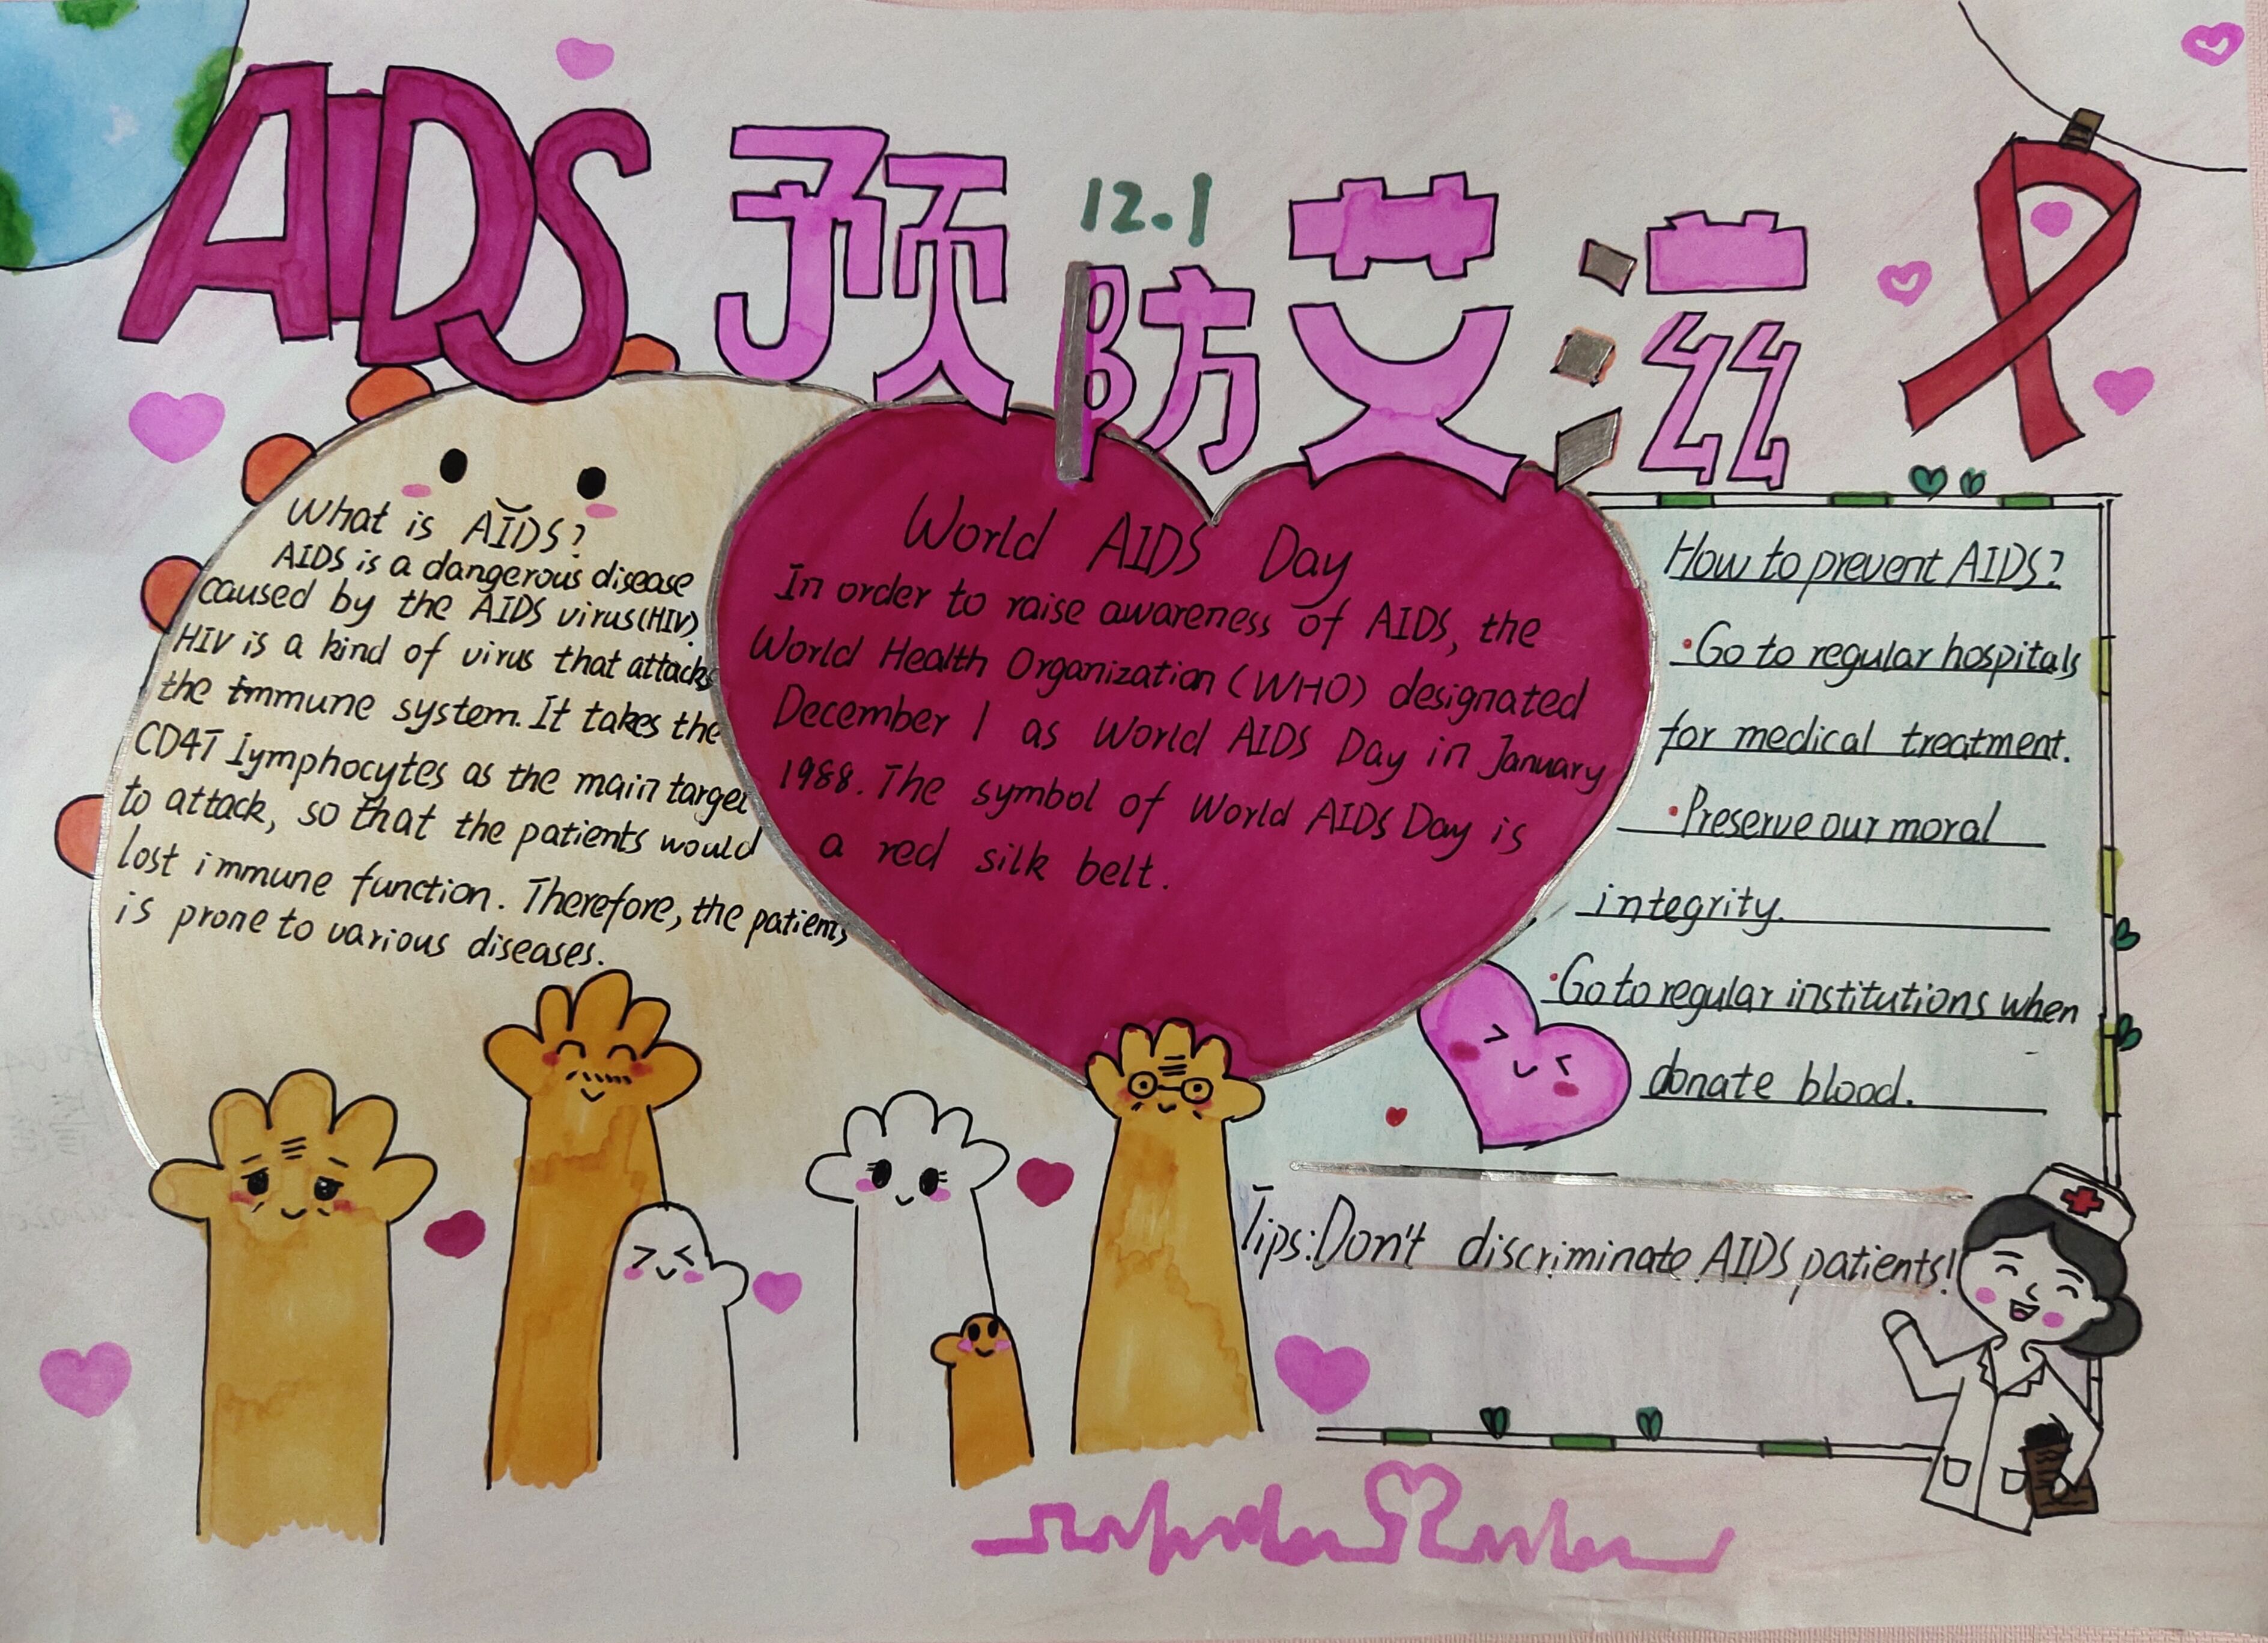 AIDS 预防艾滋
12.1
What is AIDS?
AIDS is a dangerous disease
caused by the AIDS virus(HIV).
HIV is a kind of virus that attacks
the immune system. It takes the
CD4T lymphocytes as the main target
to attack, so that the patients would
lost immune function. Therefore, the patients
is prone to various diseases.
World AIDS Day
In order to raise awareness of AIDS, the
World Health Organization (WHO) designated
December 1 as World AIDS Day in January
1988. The symbol of World AIDS Day is
a red silk belt.
How to prevent AIDS?
·Go to regular hospitals
for medical treatment.
·Preserve our moral
integrity.
·Go to regular institutions when
donate blood.
Tips:Don't discriminate AIDS patients!